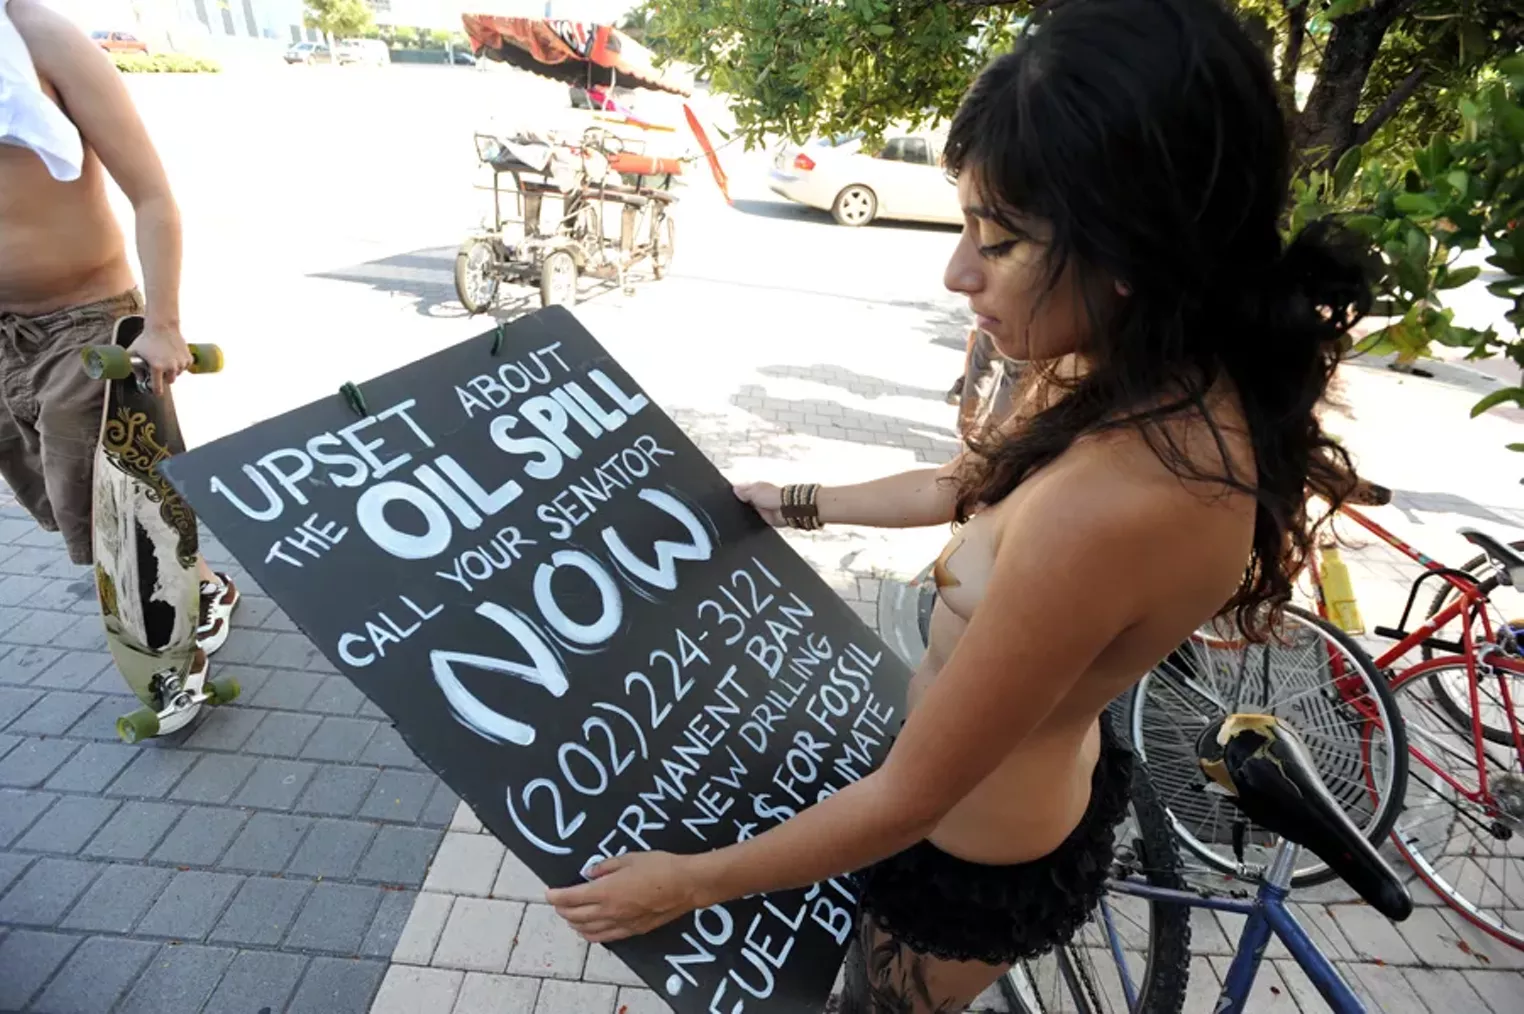 UPSET ABOUT
THE OIL SPILL
CALL YOUR SENATOR
NOW
(202) 224-3121
PERMANENT BAN
NEW DRILLING
NO $ FOR FOSSIL
FUELS